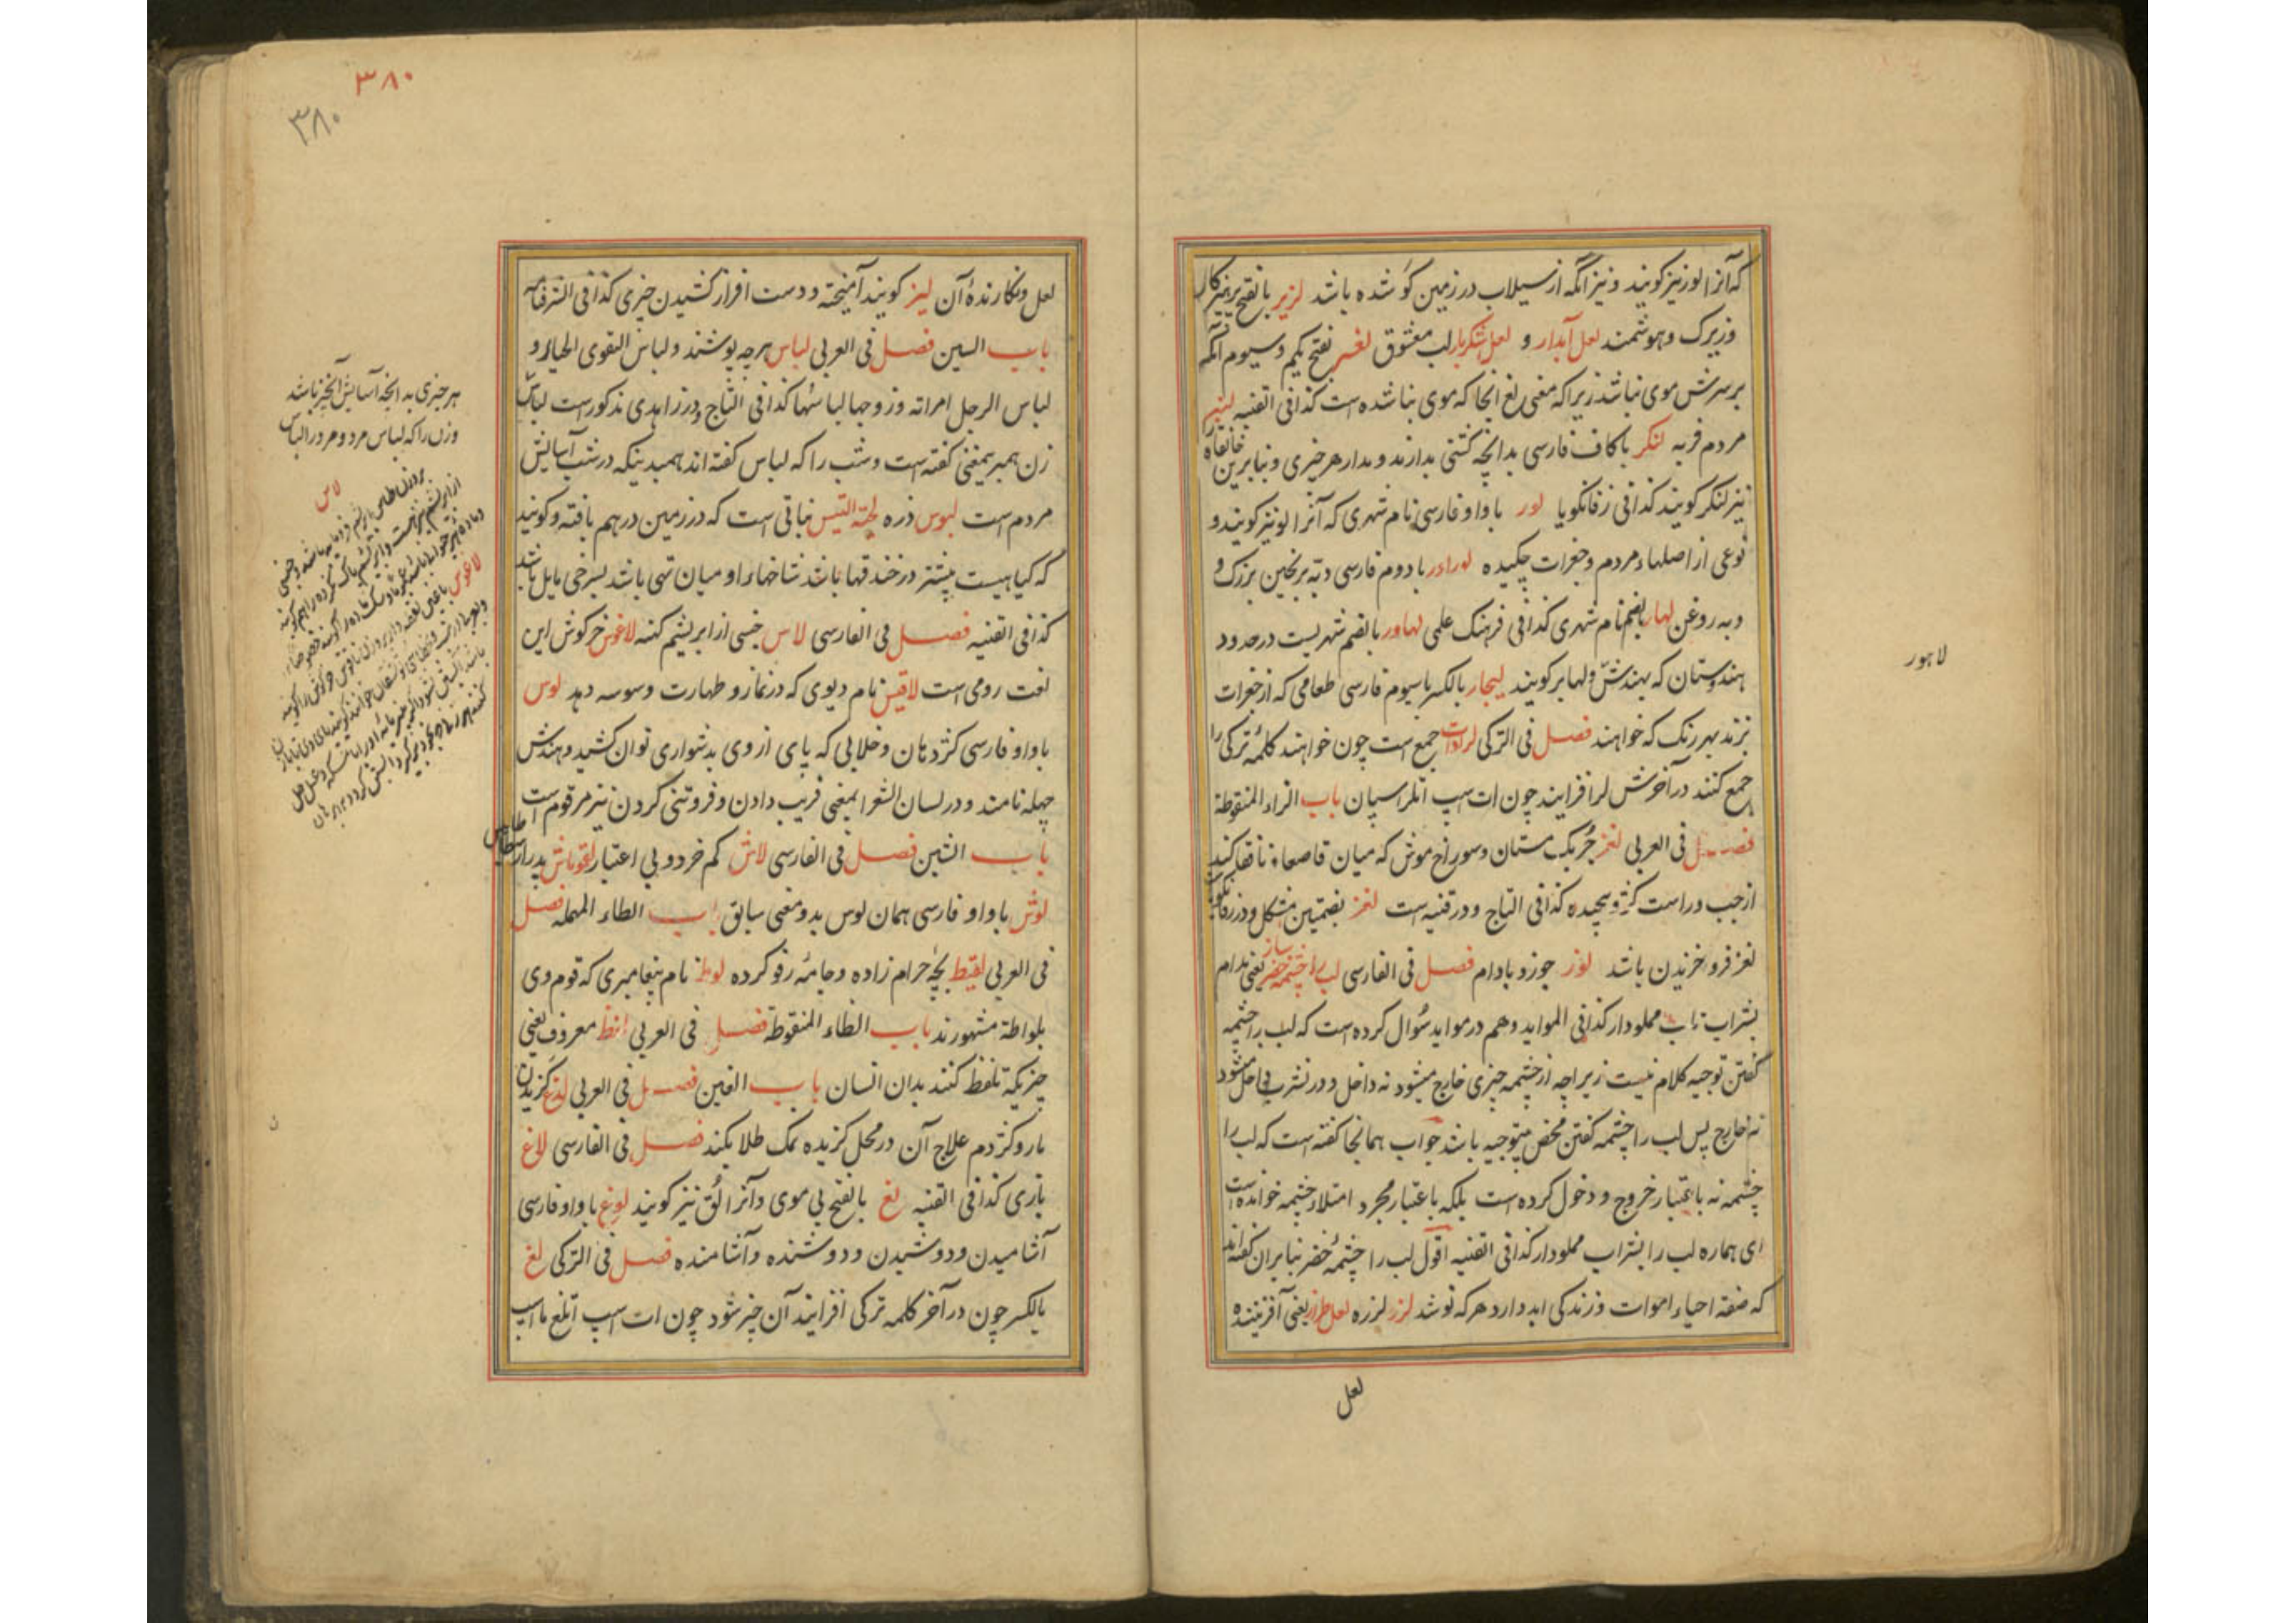 که آنرا لوز نیز کویند و نیز آنکه از سیلاب در زمین کو شده باشد لزیر بالفتح پرهیزکار
وزیرک و هوشمند لعل آبدار و لعل شکربار لب معشوق لغسر بفتح یکم و سیوم آنکه
بر سرش موی نباشد زیرا که معنی لغ آنجا که موی نباشده است کذا فی القنیه لنبر
مردم فربه لنکر با کاف فارسی بدانچه کشتی بدارند و مدار هر چیزی و بنابرین خانقاه
نیز لنکر کویند کذا فی زفانکویا لور با واو فارسی نام شهری که آنرا لو نیز کویند و
نوعی از اصلهاء مردم و جغرات چکیده لوراور با دوم فارسی دبه برنجین بزرک و
دبه روغن لهار بالضم نام شهری کذا فی فرهنک علمی لهاور بالضم شهریست در حدود
هندوستان که بهندش ولهابر کویند لیجار بالکسر با سیوم فارسی طعامی که از جغرات
بزند بهر رنک که خواهند فصل فی الترکی لرادات جمع است چون خواهند کلمه ترکی را
جمع کنند در آخرش لر افزایند چون ات اسپ اتلر اسپان باب الزاء المنقوطة
فصل فی العربی لغز چربک مستان و سوراخ موش که میان قاصعاء نافقا کند
از چپ و راست کژ و پیچیده کذا فی التاج و در قنیه است لغز بضمتین مشکل و در زفانکویا
لغز فرو خزیدن باشد لوز جوز و بادام فصل فی الفارسی لب را چشمه خضر ساز یعنی مدام
بشراب ناب مملو دار کذا فی الموائد و هم در موائد سؤال کرده است که لب را چشمه
کفتن توجیه کلام نیست زیراچه از چشمه چیزی خارج میشود نه داخل و در شرب می داخل میشود
نه خارج پس لب را چشمه کفتن محض بیتوجیه باشد جواب همانجا کفته است که لب را
چشمه نه باعتبار خروج و دخول کرده است بلکه باعتبار مجرد امتلاء چشمه خوانده است
ای هماره لب را بشراب مملو دار کذا فی القنیه اقول لب را چشمهٔ خضر بنابران کفته اند
که صفة احیاء اموات و زندکی ابد دارد هر که نوشد لزر لرزه لعل طراز یعنی آفریننده
لعل
لاهور
۳۸۰
۳۸۰
لعل و نکارندهٔ آن لیز کویند آمیخته و دست افراز کشیدن چیزی کذا فی الشرفنامه
باب السین فصل فی العربی لباس هرچه پوشند و لباس التقوی الحیاء و
لباس الرجل امراته و زوجها لباسها کذا فی التاج و در زاهدی مذکور است لباس
زن همبرین معنی کفته است و شب را که لباس کفته اند همبدینکه در شب آسایش
مردم است لبوس ذره لحیة التیس نباتی است که در زمین درهم بافته و کویند
که کیاهیست بیشتر در خندقها باشد شاخهاء او میان تهی باشد بسرخی مایل باشد
کذا فی القنیه فصل فی الفارسی لاس جنسی از ابریشم کنه لاغوس خرکوش این
لغت رومی است لاقیس نام دیوی که در نماز و طهارت وسوسه دهد لوس
با واو فارسی کژ دهان و خلابی که پای از وی بدشواری توان کشید و هندش
چهله نامند و در لسان الشعرا بمعنی فریب دادن و فروتنی کردن نیز مرقوم است
باب الشین فصل فی الفارسی لاش کم خرد و بی اعتبار لقوماش پدر ارسطاطالیس
لوش با واو فارسی همان لوس بدو معنی سابق باب الطاء المهمله فصل
فی العربی لقیط بچهٔ حرام زاده و جامهٔ رفو کرده لوط نام پیغامبری که قوم وی
بلواطة مشهورند باب الظاء المنقوطة فصل فی العربی لفظ معروف یعنی
چیزیکه تلفظ کنند بدان انسان باب الغین فصل فی العربی لدغ کزیدن
مار و کژدم علاج آن در محل کزیده نمک طلا بکند فصل فی الفارسی لاغ
بازی کذا فی القنیه لغ بالفتح بی موی و آنرا لق نیز کویند لوغ با واو فارسی
آشامیدن و دوشیدن و دوشنده و آشامنده فصل فی الترکی لغ
بالکسر چون در آخر کلمه ترکی افزایند آن چیز شود چون ات اسپ اتلغ با اسپ
هر چیزی بدانچه آسایش آنچیز باشد
وزن را که لباس مرد و مرد را لباس
لاس